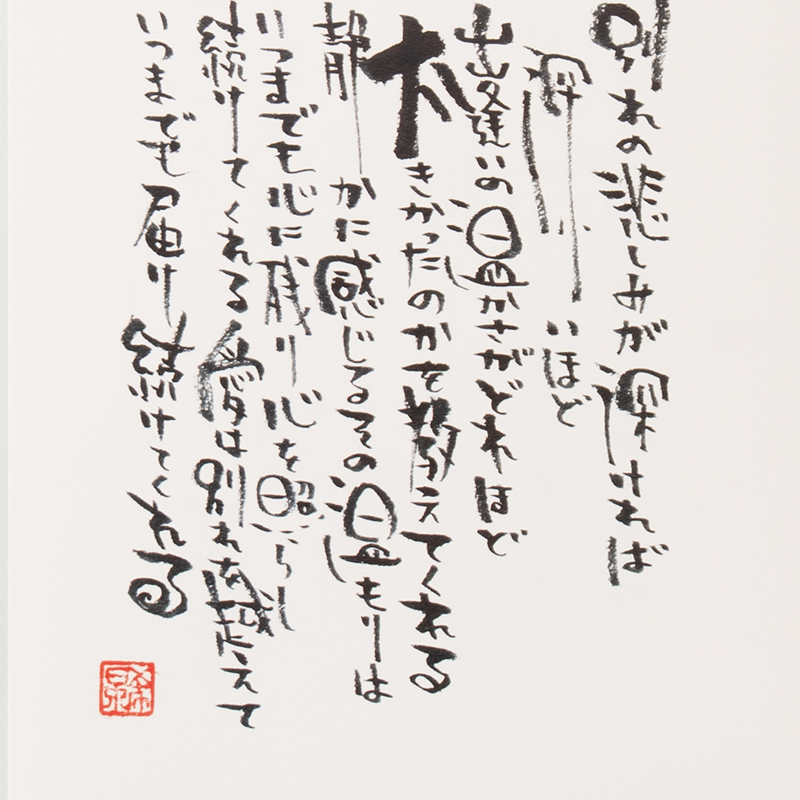 別れの悲しみが深ければ
深いほど
出逢いの温かさがどれほど
大きかったのかを教えてくれる
静かに感じるその温もりは
いつまでも心に残り心を照らし
続けてくれる愛は別れを越えて
いつまでも届け続けてくれる